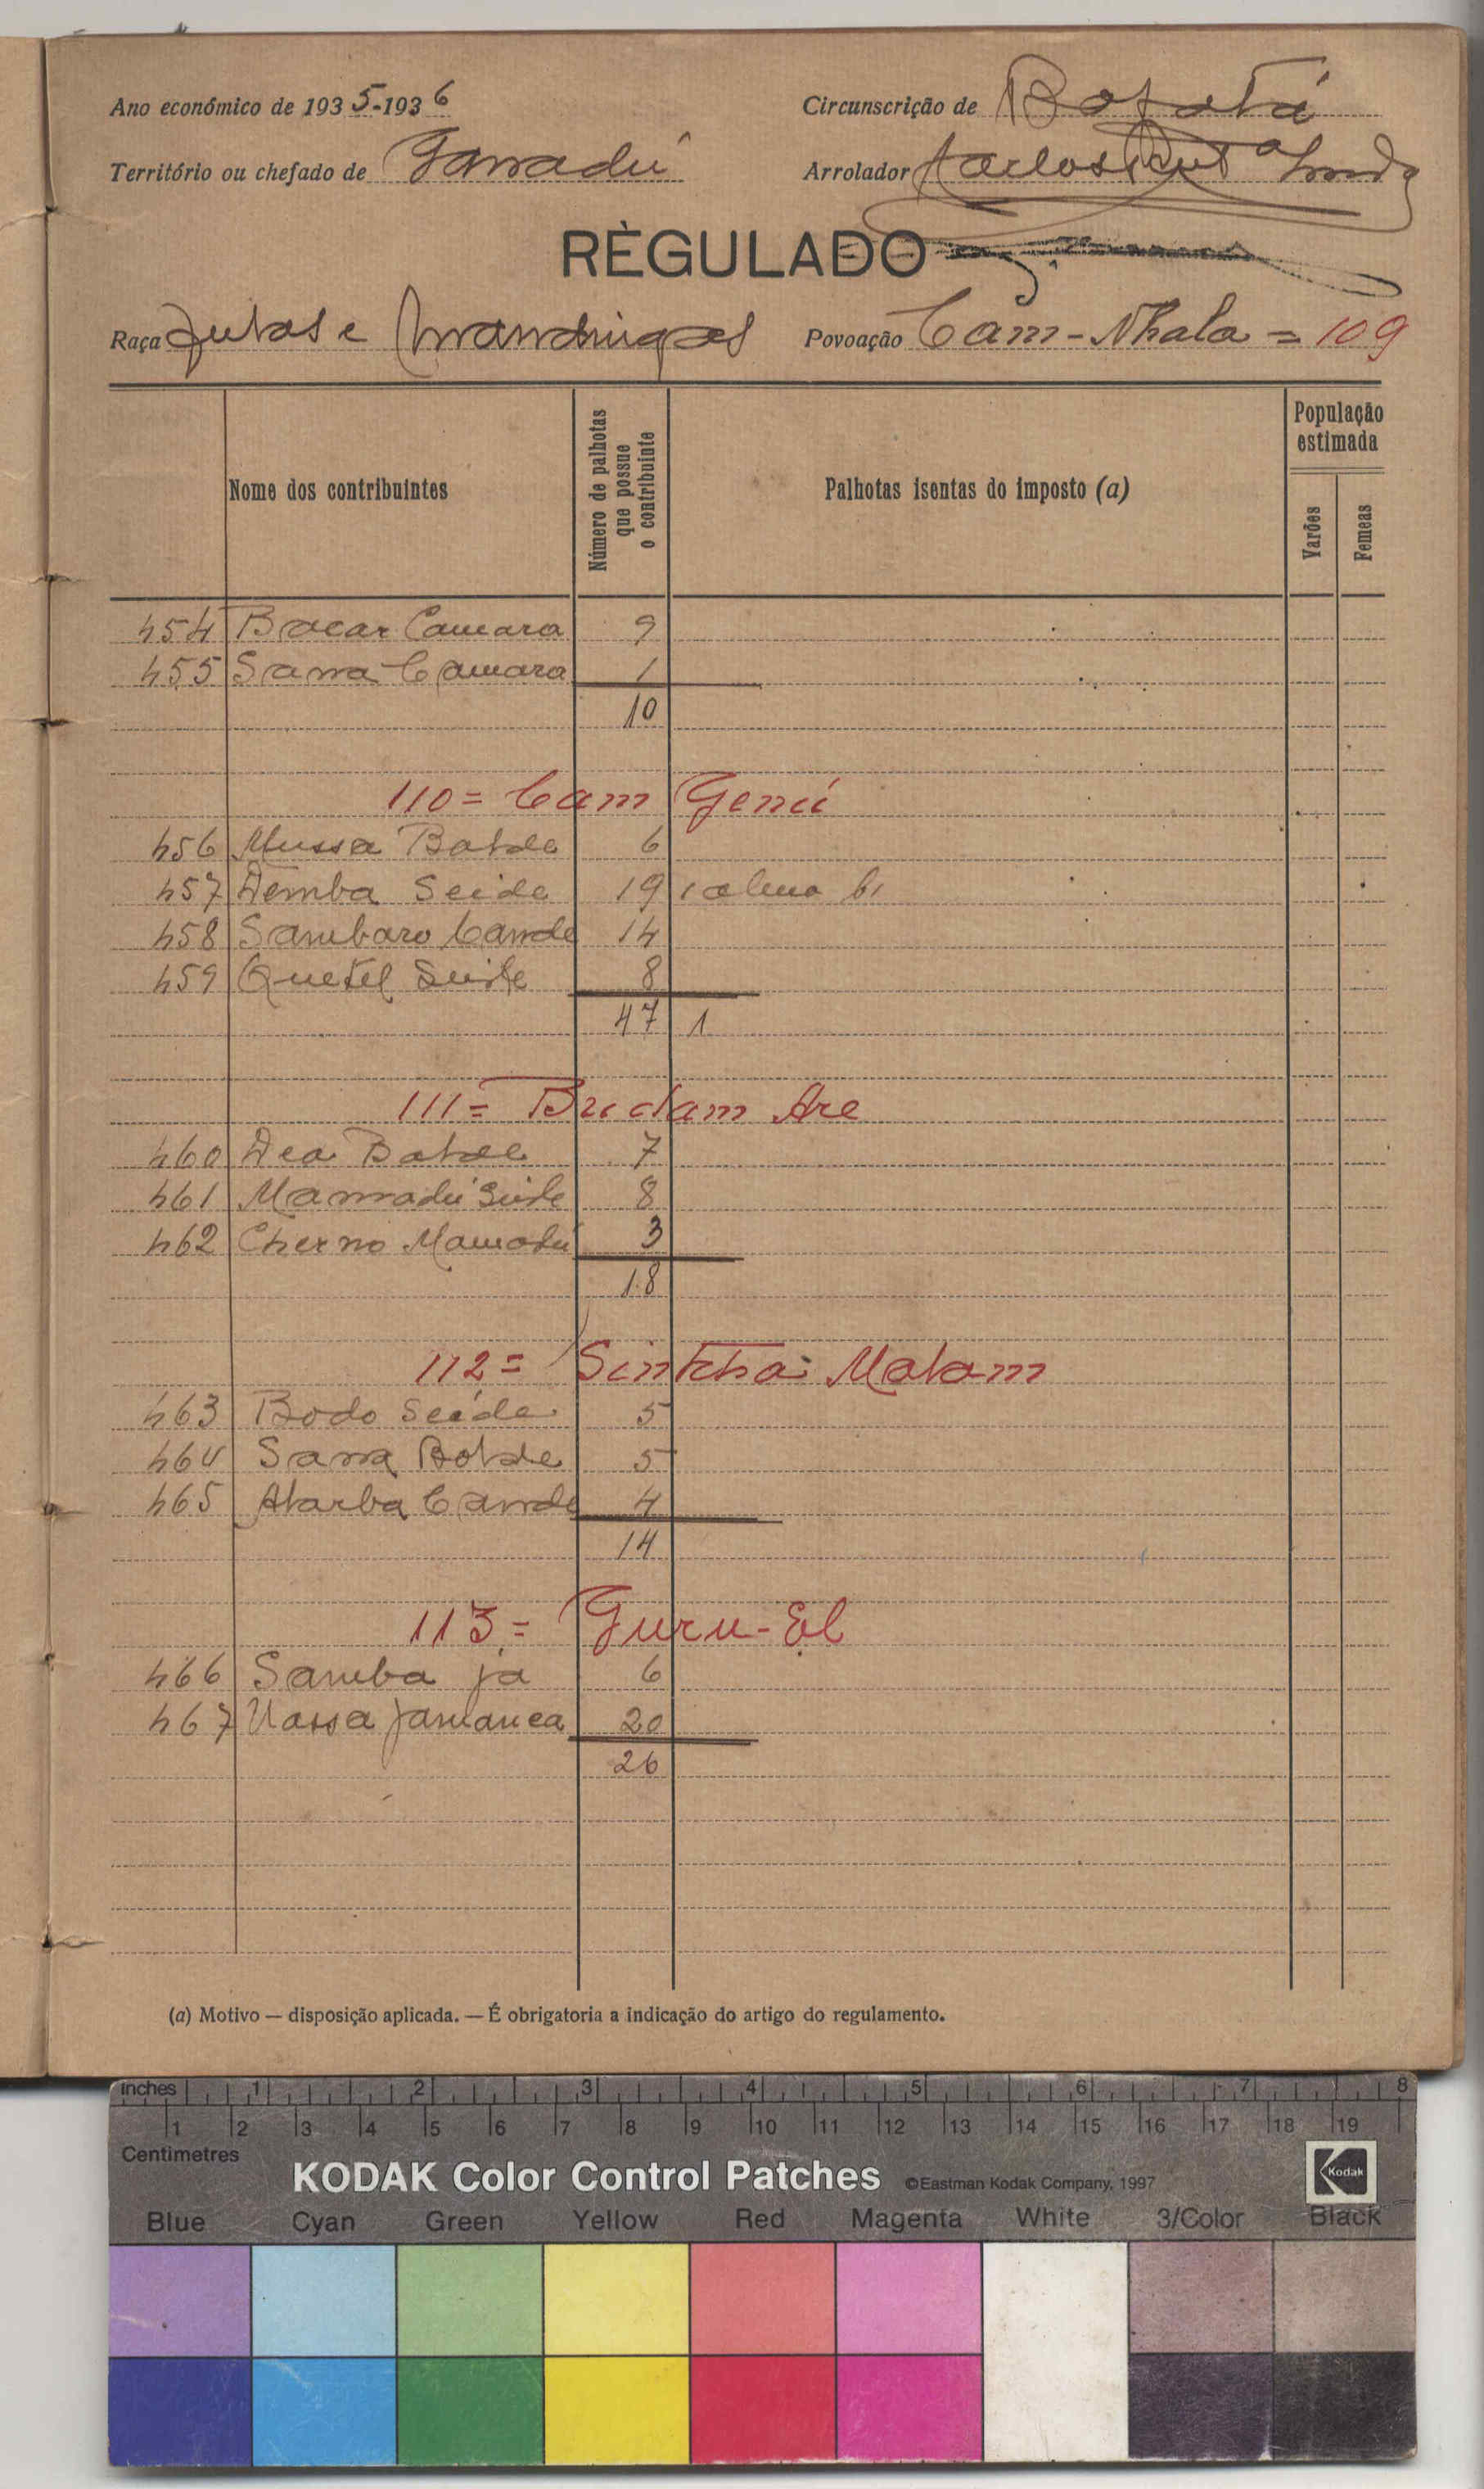 Ano económico de 1935-1936
Circunscrição de Bafatá
Território ou chefado de Ganadú
Arrolador Carlos
REGULADO
Raça Fulas e Mandingas
Povoação Cam-Nhala = 109
Nome dos contribuintes
Número de palhotas que possue o contribuinte
Palhotas isentas do imposto (a)
População estimada
Varões
Femeas
454 Bacar Camara 9
455 Sana Camara 1
10
110 = Cam Genú
456 Mussa Balde 6
457 Demba Seide 19 1
458 Sambaro Cande 14
459 Quetel Seide 8
47 1
111 = Brudam Are
460 Dea Balde 7
461 Mamadú Seide 8
462 Cherno Mamadú 3
18
112 = Sintcha Malam
463 Bodo Seide 5
464 Sana Balde 5
465 Cande 4
14
113 = Guru-El
466 Samba já 6
467 Uassa Jamanca 20
26
(a) Motivo — disposição aplicada. — É obrigatoria a indicação do artigo do regulamento.
inches 1 2 3 4 5 6 7 8
1 2 3 4 5 6 7 8 9 10 11 12 13 14 15 16 17 18 19
Centimetres
KODAK Color Control Patches ©Eastman Kodak Company, 1997 Kodak
Blue Cyan Green Yellow Red Magenta White 3/Color Black